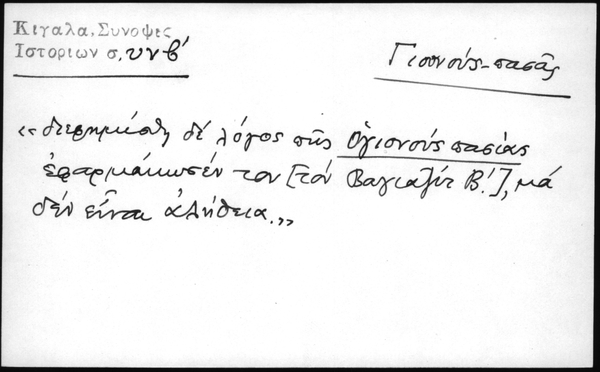 Κιγαλα, Συνοψις
Ιστοριων σ. υνβ'
Γιουνούς-πασᾶς
«διεφημίσθη δέ λόγος πῶς ὁ γιονούς πασίας
ἐφαρμάκωσέν τον [τόν Βαγιαζήτ Β'.], μά
δέν εἶναι ἀλήθεια.»